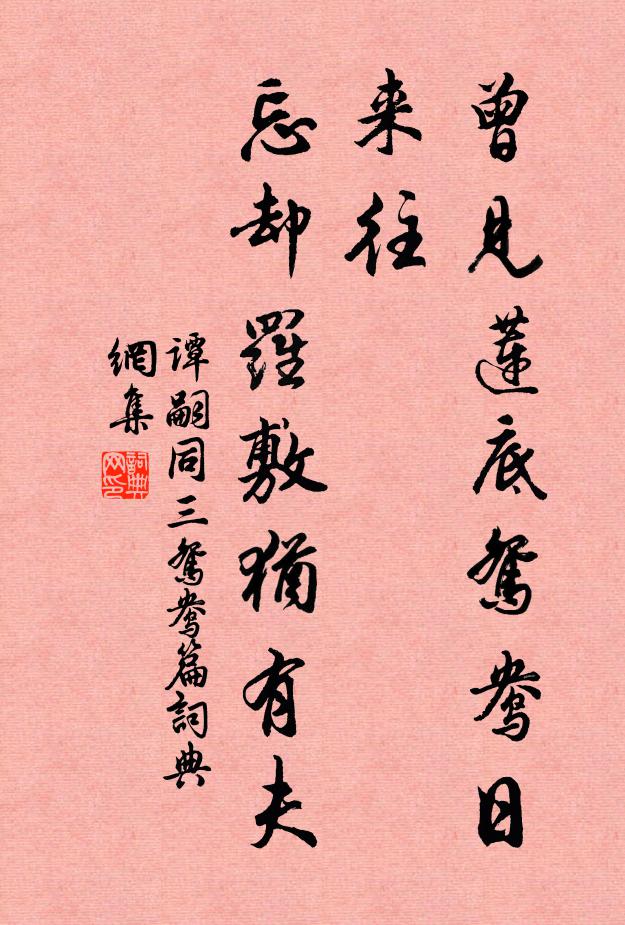 曾見蓮底鴛鴦日
来往
忘却羅敷猶有夫
谭嗣同三鴛鴦篇詞典
網集
詞典
网印